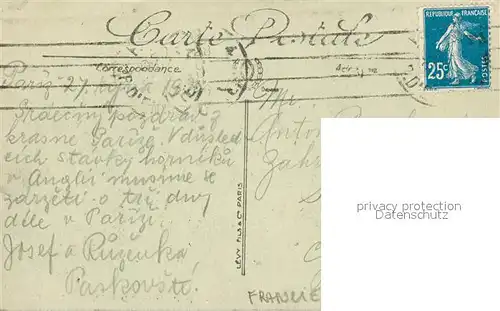 Carte Postale
Correspondance
RÉPUBLIQUE FRANÇAISE
25c
POSTES
Paříž 27
Srdečný pozdrav z
krásné Paříže. V důsled
cích stávky horníků
v Anglii musíme se
zdržeti o tři dny
déle v Paříži.
Josef a Růženka
Paskovští.
Mr.
Anton
LÉVY FILS & Cie PARIS
FRANCIE
privacy protection
Datenschutz